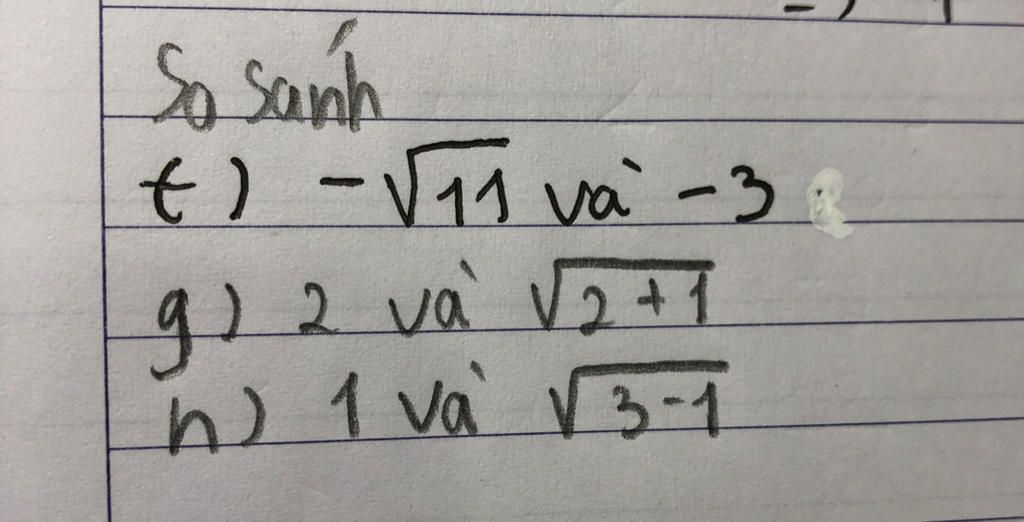 So sánh
t) -√11 và -3
g) 2 và √2+1
h) 1 và √3-1